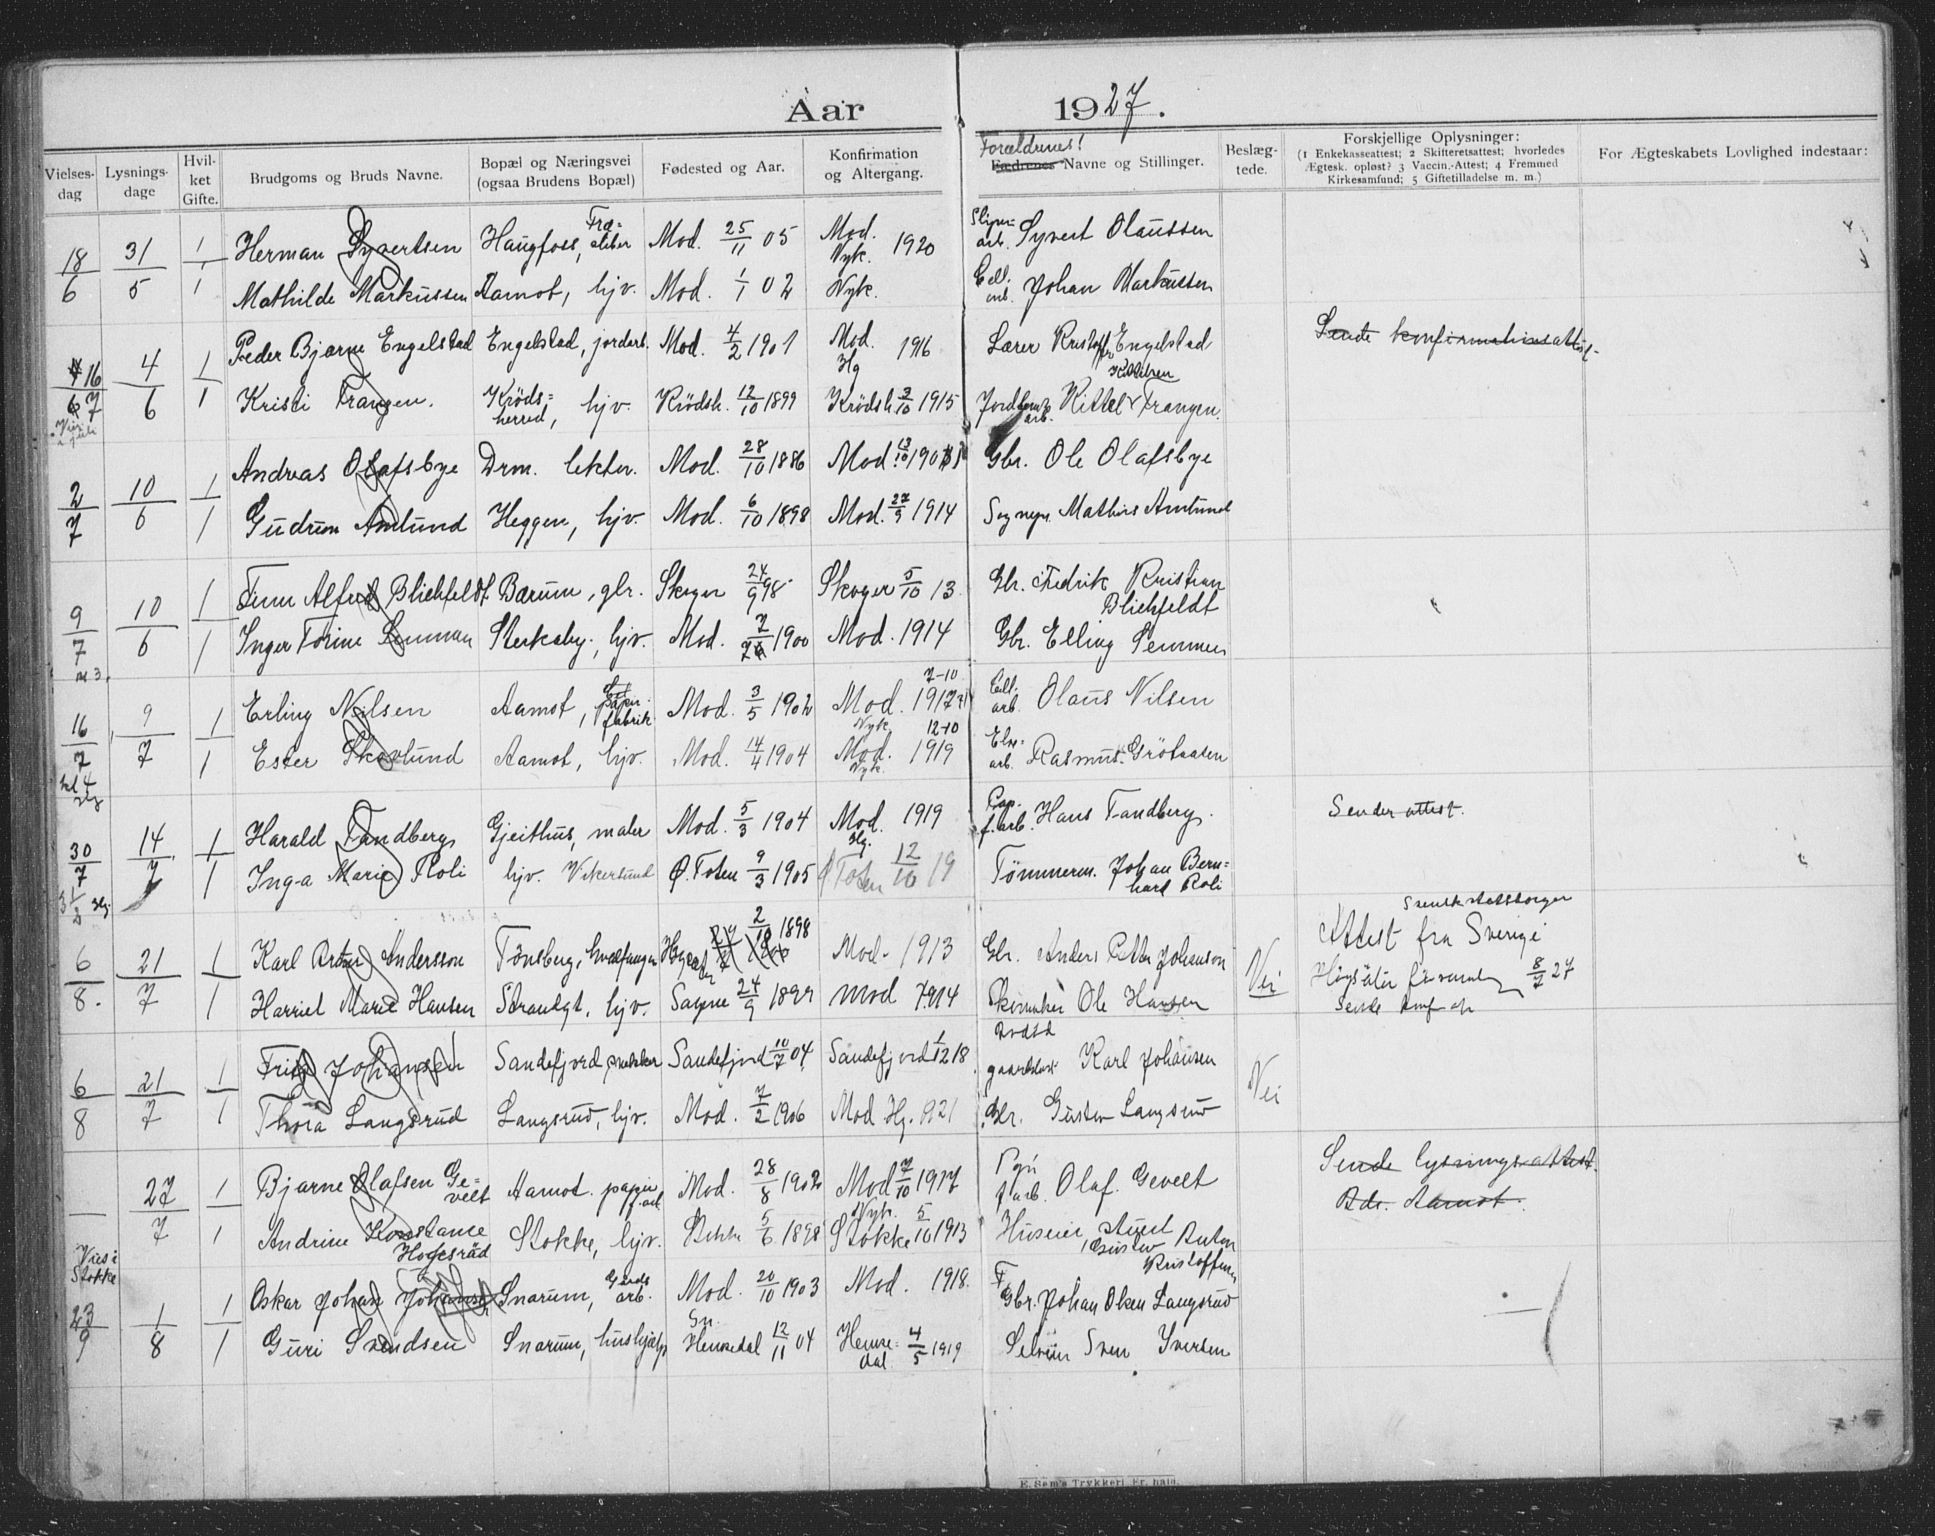 Aar 1927.
Vielses-dag
Lysnings-dage
Hvil-ket Gifte.
Brudgoms og Bruds Navne.
Bopæl og Næringsvei (ogsaa Brudens Bopæl)
Fødested og Aar.
Konfirmation og Altergang.
Forældrenes! Fædrenes Navne og Stillinger.
Beslæg-tede.
Forskjellige Oplysninger: (1 Enkekasseattest; 2 Skifteretsattest; hvorledes Ægtesk. opløst? 3 Vaccin.-Attest; 4 Fremmed Kirkesamfund; 5 Giftetilladelse m. m.)
For Ægteskabets Lovlighed indestaar:
18/6 31/5 1 Herman Syvertsen Haugfoss, Mod. 25/11 05 Mod. Nyk. 1920 arb. Syvert Olaussen
1 Mathilde Markussen Aamot, hjv. Mod. 1/1 02 Nyk. Johan Markussen
16/7 4/6 1 Peder Bjarne Engelstad Engelstad, jordarb. Mod. 4/2 1901 Mod. Hg 1916 Lærer Kristoffer Engelstad Sende konfirmationsattest
1 Kristi Frangen. Krøds-herred, hjv. Krødsh. 12/10 1899 Krødsh 3/10 1915 Kittel Kittilsen Frangen.
2/7 10/6 1 Andreas Olafsbye Drm. lektor. Mod. 28/10 1886 Mod. 13/10 1901 Gbr. Ole Olafsbye
1 Gudrun Amlund Heggen, hjv. Mod. 6/10 1898 Mod. 27/9 1914 Sognepr. Mathias Amlund
9/7 10/6 1 Finn Alfred Blichfeldt. Bærum, gbr. Skoger 24/9 98 Skoger 5/10 13. Gbr. Fredrik Kristian Blichfeldt
1 Inger Torine Semmen Sterkeby, hjv. Mod. 1900 Mod. 1914 Gbr. Elling Semmen
16/7 9/7 1 Erling Nilsen Aamot, papir fabrik Mod. 3/5 1902 Mod. 7-10 1917 Nyk. Cell. arb. Olaus Nilsen
kl 4
1 Ester Skovlund Aamot, hjv. Mod. 14/4 1904 Mod. Nyk. 12-10 1919 arb. Rasmus Grötaasen
30/7 14/7 1 Harald Tandberg Gjeithus, maler Mod. 5/3 1904 Mod. Hg. 1919 Pap. f. arb. Hans Tandberg. Sender attest.
1 Inga Marie Roli hjv. Vikersund Ø. Toten 9/3 1905 Ø Toten 12/10 19 Tømmerm. Johan Bern-hard Roli
6/8. 21/7 1 Karl Andersson Tønsberg, hvalfanger 2/10 1898 Mod. 1913 Gbr. Anders Johanson Nei Svensk statsborger Attest fra Sverige 8/7 27
1 Harriet Marie Hansen Strandgt, hjv. Sagene 24/9 1899 Mod 1914 Ole Hansen
6/8 21/7 1 Fritz Johansen Sandefjord, snekker Sandefjord 10/7 04 Sandefjord 1/12 18 Karl Johansen Nei
1 Thora Langsrud Langsrud, hjv. Mod. 7/2 1906 Mod Hg. 1921 Gbr. Gustav Langsrud
27/7 1 Bjarne Olafsen Ge-velt Aamot. papir f. arb Mod. 28/8 1902 Mod 7/10 1917 Nyk. f. arb. Olaf Gevelt Sende lysningsattest. Adr. Aamot.
Vies i Stokke
1 Andrine Konstance Stokke, hjv. Stokke 5/6 1898 Stokke 5/10 1913 Huseier Gustav Anton Kristoffersen
23/9 1/8 1 Oskar Johan Johansen Snarum, arb. Mod. 20/10 1903 Mod. 1918. Gbr. Johan Olsen Langsrud
1 Guri Svendsen Snarum, hushjælp Hemsedal 12/11 04 Hemse-dal 4/5 1919 Sven Iversen
E. Sem's Trykkeri Fr. hald.